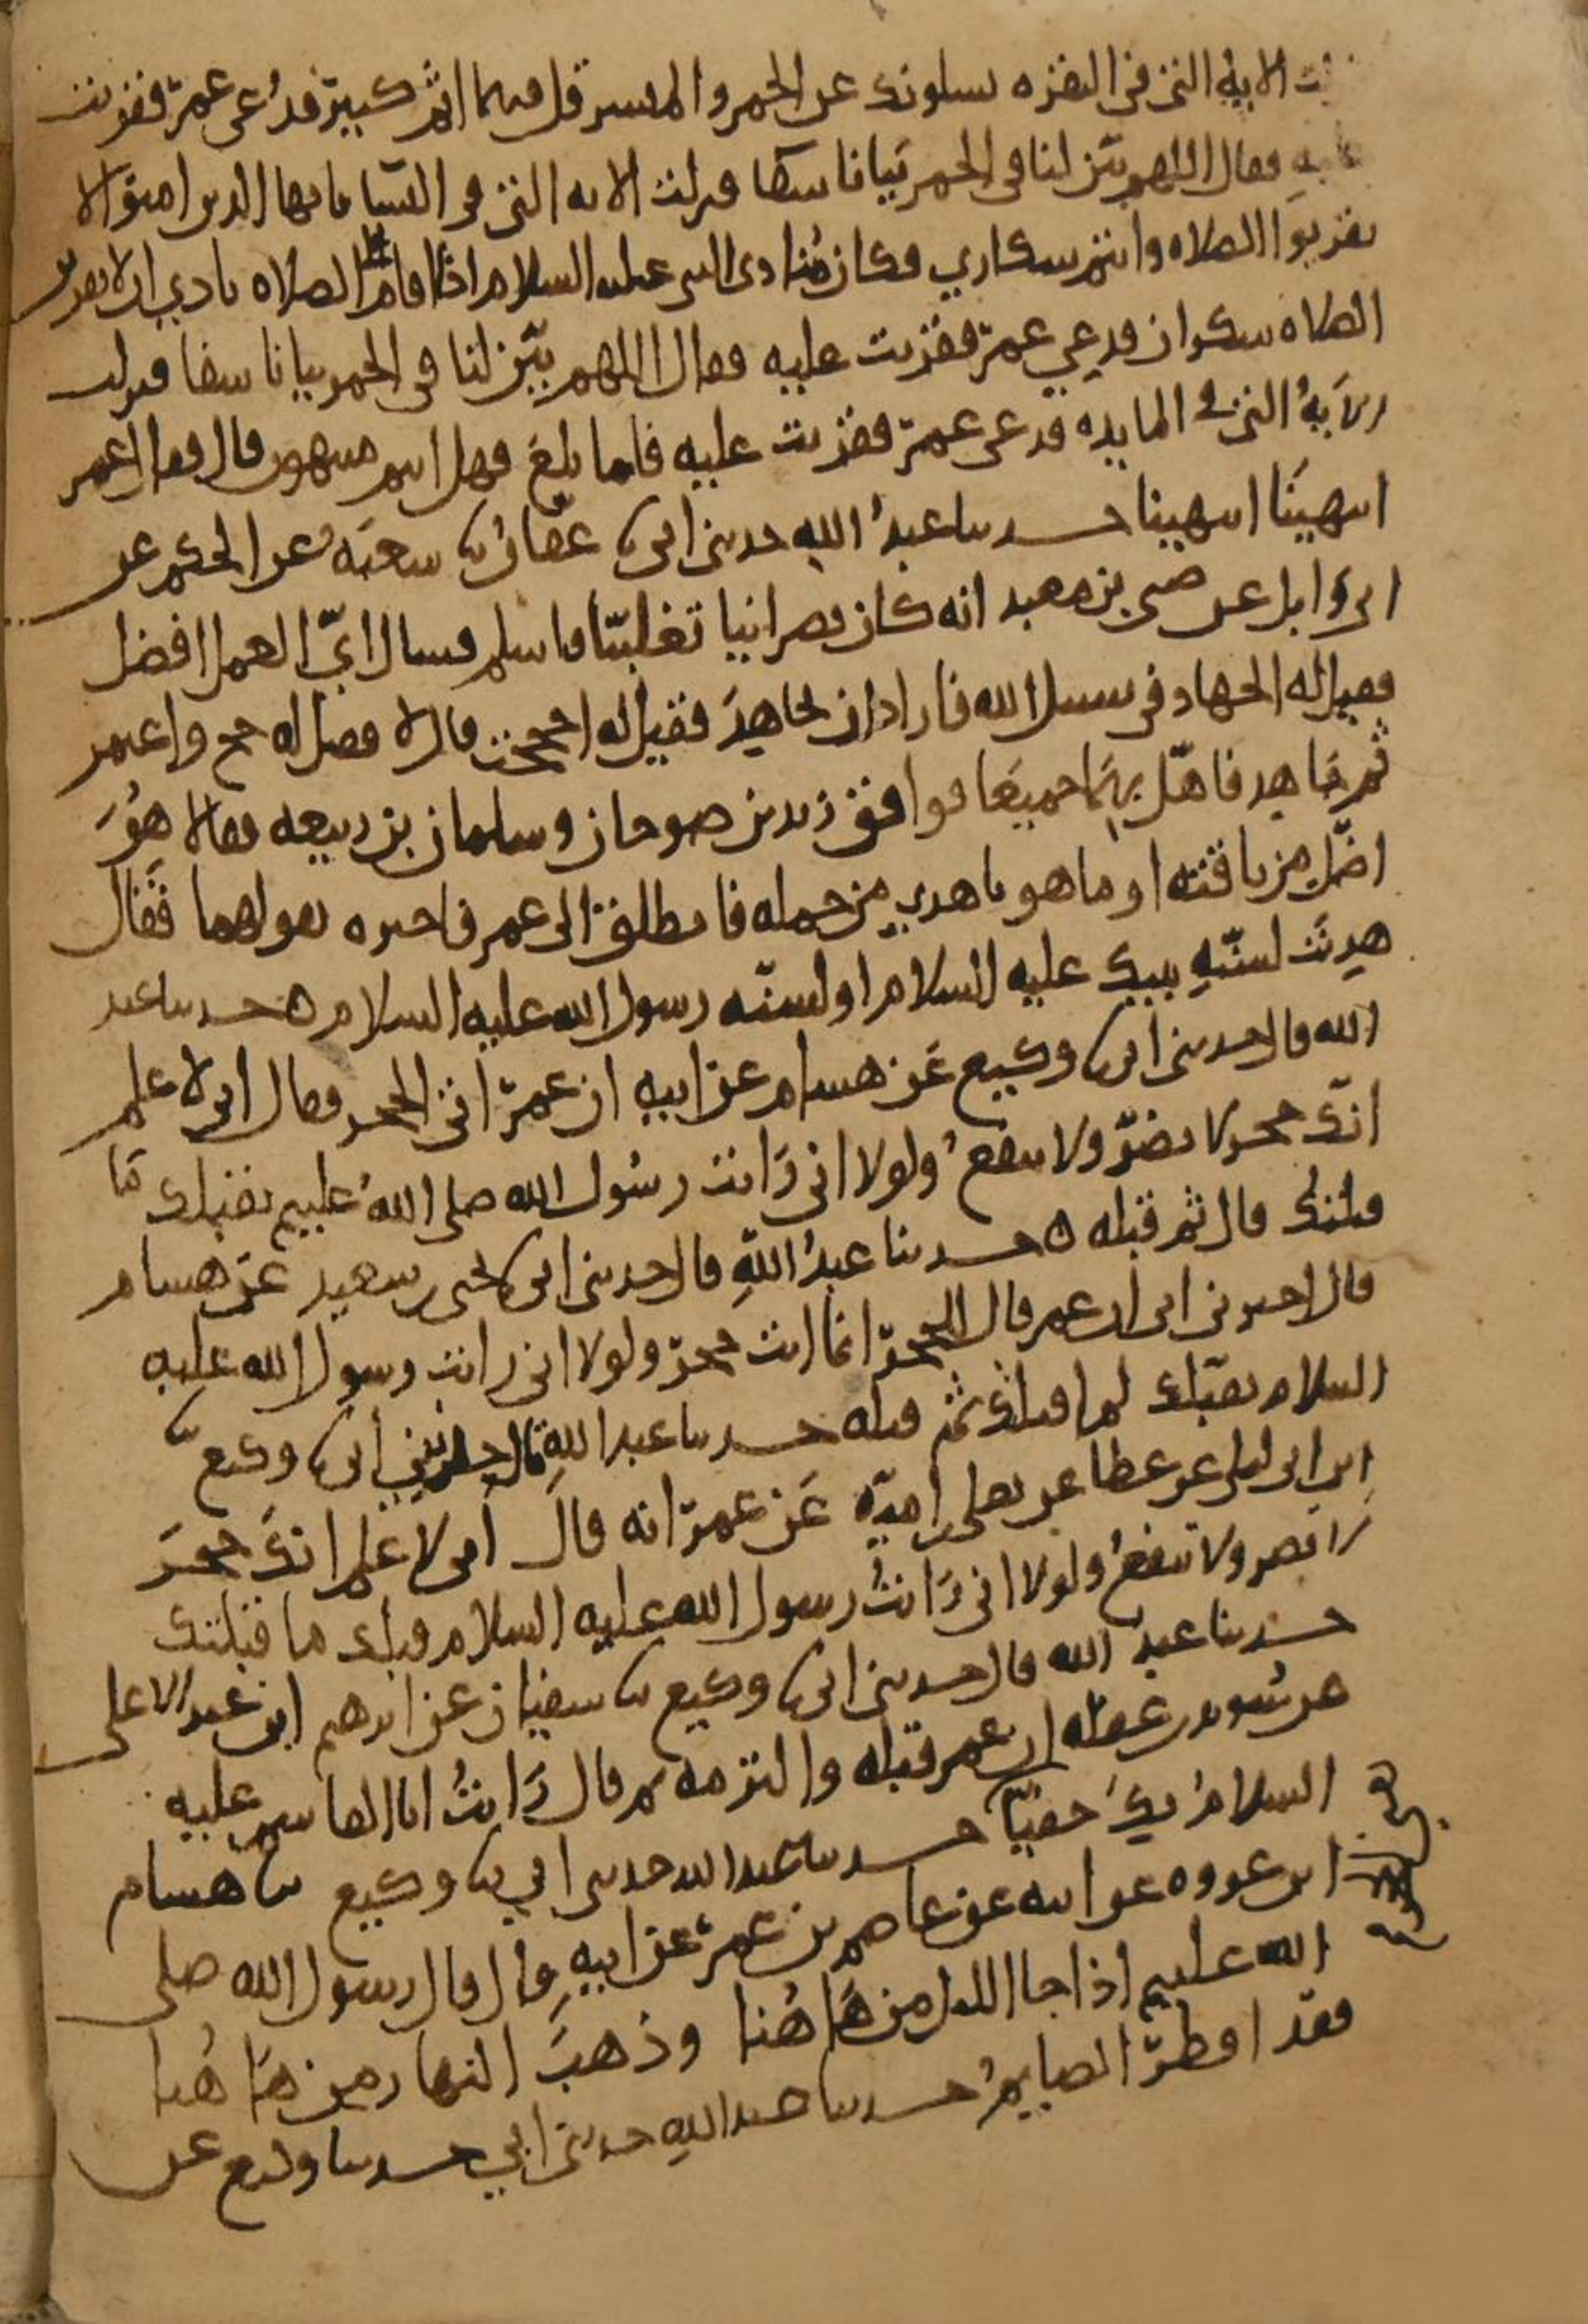 الاية التي في البقره يسلونك عن الخمر والميسر قل فيهما اثم كبير فدعى عمر فقريت
عليه فقال اللهم بين لنا في الخمر بيانا شفا فنزلت الايه التي في النسا يايها الذين امنوا لا
تقربوا الصلاه وانتم سكاري فكان منادي النبي عليه السلام اذا اقام الصلاه نادي ان لا يقربن
الصلاه سكران فدعي عمر فقريت عليه فقال اللهم بين لنا في الخمر بيانا شفا فنزلت
الآيةُ التي في المايده فدعى عمر فقريت عليه فلما بلغ فهل انتم منتهون قال فقال عمر
انتهينا انتهينا حدثنا عبدُ الله حدثني ابي نا عفان نا شعبَه عن الحكم عن
ابي وايل عن صبي بن معبد انه كان نصرانيا تغلبيّا فاسلم فسال ايّ العمل افضل
فقيل له الجهاد في سبيل الله فاراد ان يجاهِدَ فقيل له احججت قال لا فقيل له حج واعتمر
ثم جاهد فاهلّ بهمَا جميعَا فوافق زيد بن صوحان وسلمان بن ربيعه فقالا هوَ
اضلّ من ناقته او ما هو باهدي من جمله فانطلق الى عمر فاخبره بقولهما فقال
هدِيتَ لسنّةِ نبيك عليه السلام او لسنّه رسول الله عليه السلام ه حدثنا عبد
الله قال حدثني ابي نا وكيع عَن هشام عن ابيه ان عمر اتى الحجر فقال اني لاعلم
انكّ حجر لا تضرّ ولا تنفعُ ولولا اني رَايت رسُول الله صلى اللهُ عليه يقبلك ما
قبلتك قال ثم قبله ه حدثنا عبدُ اللهِ قال حدثني ابي نا يحيى بن سعيد عن هشام
قال اخبرني ابي ان عمر قال للحجر انما انت حجر ولولا اني رايت رسول الله عليه
السلام يقبّلك لما قبلتك ثم قبله حدثنا عبد اللهِ قال حدثني ابي نا وكيع نا
ابن ابي ليلى عن عطا عن يعلى بن اميّه عَن عمر انه قال اني لاعلم انكَ حجَر
لا تضر ولا تنفعُ ولولا اني رَايتُ رسول الله عليه السلام قبلك ما قبلتك
حدثنا عبدُ الله قال حدثني ابي نا وكيع نا سفيان عن ابرهيم ابن عبد الاعلى
عن سُويد بن غفله ان عمر قبله والتزمه ثم قال رَايتُ ابا القاسم عليه
السلامُ بكَ حفيّا حدثنا عبد الله حدثني ابي نا وكيع نا هشام
ابن عروه عن ابيه عن عاصم بن عمر عن ابيهِ قال قال رسول الله صلى
الله عليه اذا جا الليل من هَا هُنا وذهبَ النهار من هَا هُنا
فقد افطرّ الصايمُ حدثنا عبد اللهِ حدثني ابي حدثنا وكيع عن